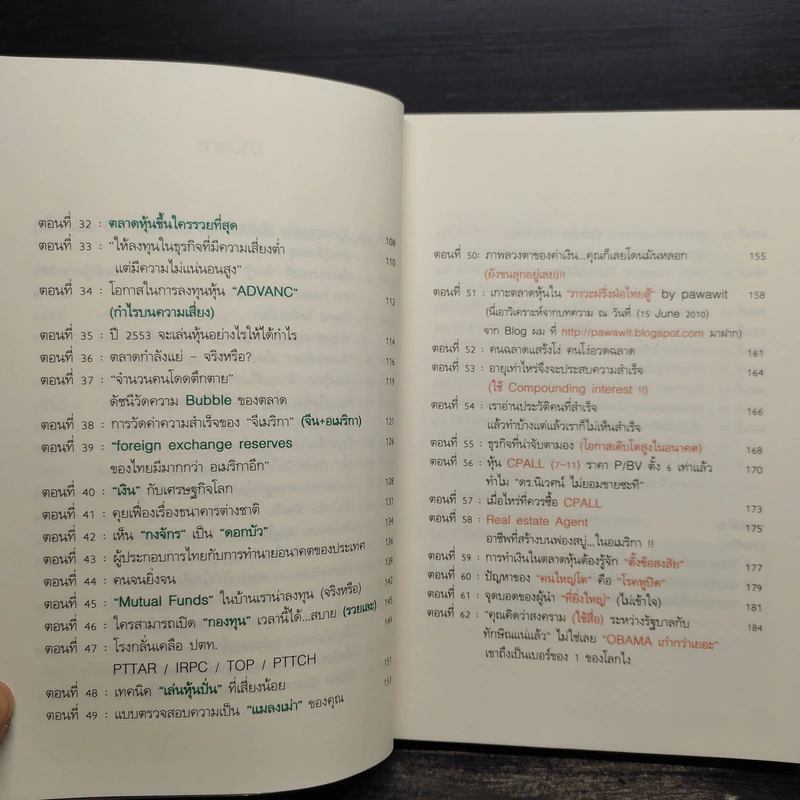 ตอนที่ 32 : ตลาดหุ้นขึ้นใครรวยที่สุด 108
ตอนที่ 33 : "ให้ลงทุนในธุรกิจที่มีความเสี่ยงต่ำ 110
แต่มีความไม่แน่นอนสูง"
ตอนที่ 34 : โอกาสในการลงทุนหุ้น "ADVANC" 112
(กำไรบนความเสี่ยง)
ตอนที่ 35 : ปี 2553 จะเล่นหุ้นอย่างไรให้ได้กำไร 114
ตอนที่ 36 : ตลาดกำลังแย่ - จริงหรือ? 116
ตอนที่ 37 : "จำนวนคนโดดตึกตาย" 119
ดัชนีวัดความ Bubble ของตลาด
ตอนที่ 38 : การวัดค่าความสำเร็จของ "จีเมริกา" (จีน+อเมริกา) 121
ตอนที่ 39 : "foreign exchange reserves 126
ของไทยมีมากกว่า อเมริกาอีก"
ตอนที่ 40 : "เงิน" กับเศรษฐกิจโลก 128
ตอนที่ 41 : คุยเฟื่องเรื่องธนาคารต่างชาติ 131
ตอนที่ 42 : เห็น "กงจักร" เป็น "ดอกบัว" 134
ตอนที่ 43 : ผู้ประกอบการไทยกับการทำนายอนาคตของประเทศ 136
ตอนที่ 44 : คนจนยิ่งจน 139
ตอนที่ 45 : "Mutual Funds" ในบ้านเราน่าลงทุน (จริงหรือ) 142
ตอนที่ 46 : ใครสามารถเปิด "กองทุน" เวลานี้ได้...สบาย (รวยเละ) 145
ตอนที่ 47 : โรงกลั่นเครือ ปตท. 149
PTTAR / IRPC / TOP / PTTCH
ตอนที่ 48 : เทคนิค "เล่นหุ้นปั่น" ที่เสี่ยงน้อย 151
ตอนที่ 49 : แบบตรวจสอบความเป็น "แมลงเม่า" ของคุณ 153
ตอนที่ 50: ภาพลวงตาของค่าเงิน...คุณก็เลยโดนมันหลอก 155
(ยังขนลุกอยู่เลย)!!
ตอนที่ 51 : เกาะตลาดหุ้นใน "ภาวะฝรั่งมือไทยสู้" by pawawit 158
(นี่เอาวิเคราะห์จากบทความ ณ วันที่ (15 June 2010)
จาก Blog ผม ที่ http://pawawit.blogspot.com มาฝาก)
ตอนที่ 52 : คนฉลาดแสร้งโง่ คนโง่อวดฉลาด 161
ตอนที่ 53 : อายุเท่าไหร่จึงจะประสบความสำเร็จ 164
(ใช้ Compounding interest !!)
ตอนที่ 54 : เราอ่านประวัติคนที่สำเร็จ 166
แล้วทำบ้างแต่เราก็ไม่เห็นสำเร็จ
ตอนที่ 55 : ธุรกิจที่น่าจับตามอง (โอกาสเติบโตสูงในอนาคต) 168
ตอนที่ 56 : หุ้น CPALL (7-11) ราคา P/BV ตั้ง 6 เท่าแล้ว 170
ทำไม "ดร.นิเวศน์ ไม่ยอมขายซะที"
ตอนที่ 57 : เมื่อไหร่ที่ควรซื้อ CPALL 173
ตอนที่ 58 : Real estate Agent 175
อาชีพที่สร้างบนฟองสบู่...ในอเมริกา !!
ตอนที่ 59 : การทำเงินในตลาดหุ้นต้องรู้จัก "ตั้งข้อสงสัย" 177
ตอนที่ 60 : ปัญหาของ "คนใหญ่โต" คือ "โรคหูปิด" 179
ตอนที่ 61 : จุดบอดของผู้นำ "ที่ยิ่งใหญ่" (ไม่เข้าใจ) 181
ตอนที่ 62 : "คุณคิดว่าสงคราม (ใช้สื่อ) ระหว่างรัฐบาลกับ 184
ทักษิณแน่แล้ว" ไม่ใช่เลย "OBAMA เก๋ากว่าเยอะ"
เขาถึงเป็นเบอร์ของ 1 ของโลกไง